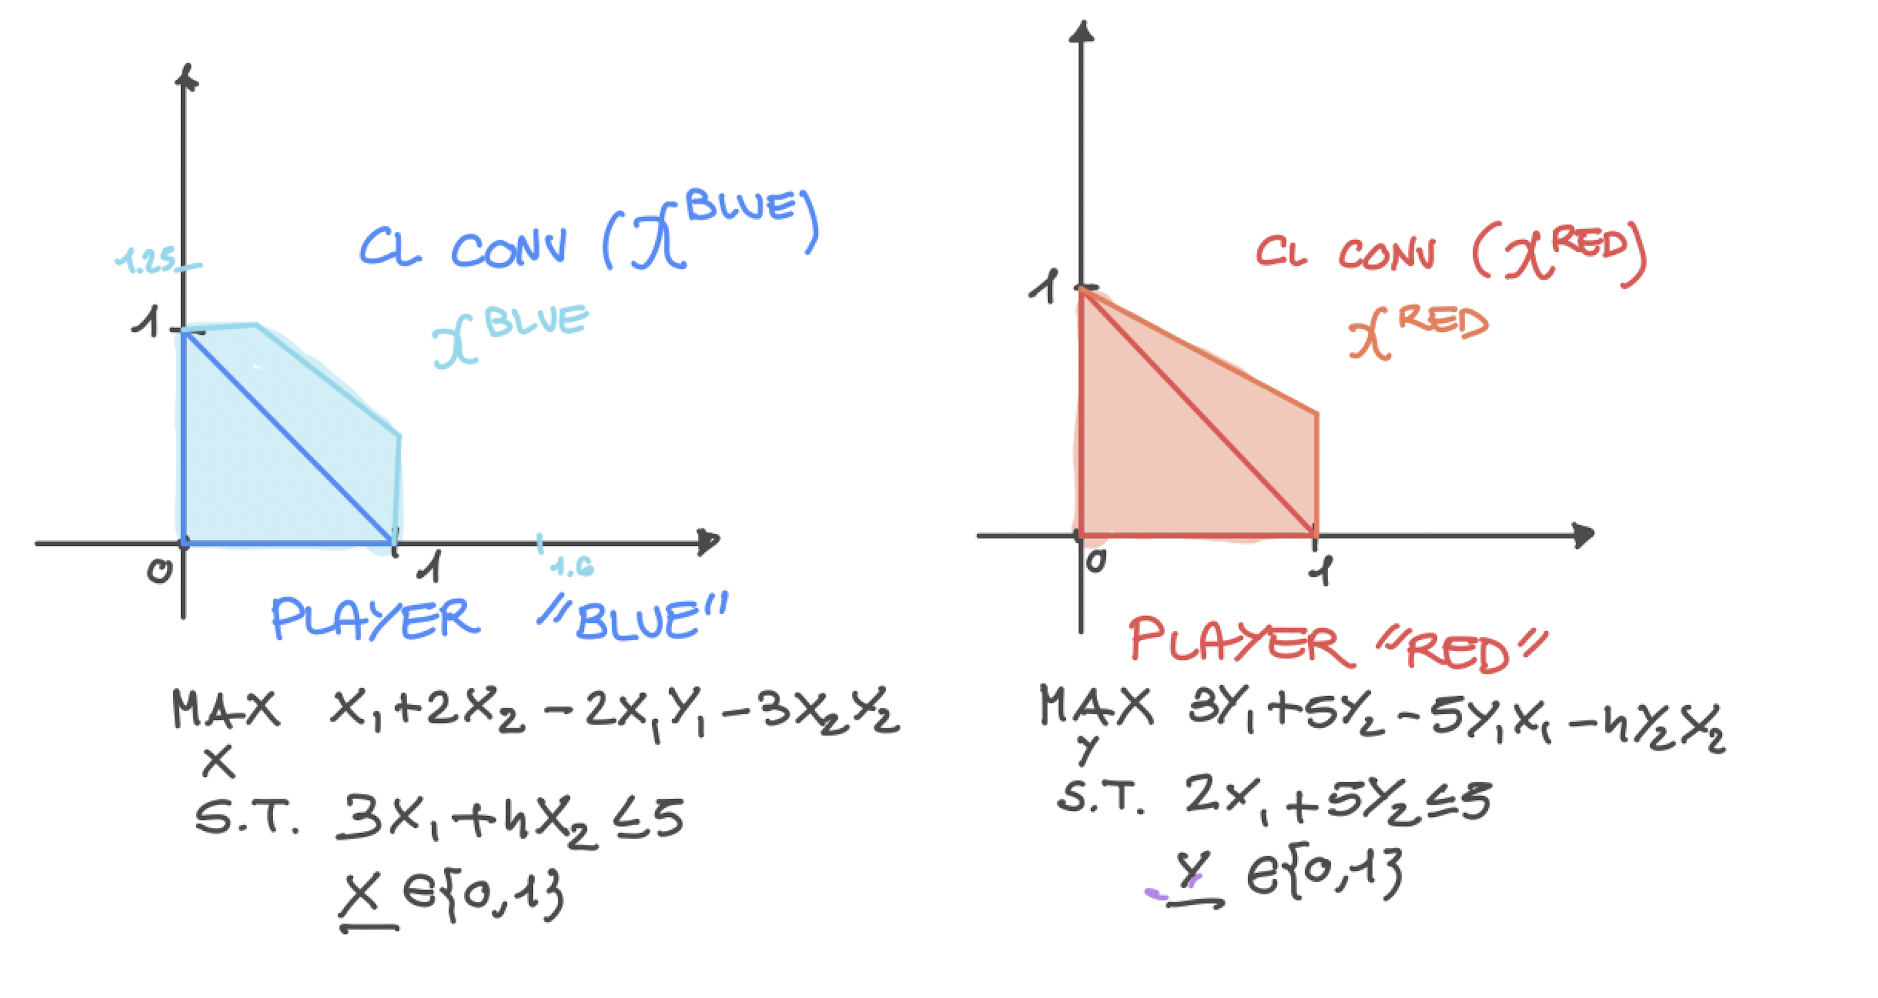 1.25
1
CL CONV (X^BLUE)
X^BLUE
0
1
1.6
PLAYER "BLUE"
MAX X₁+2X₂-2X₁Y₁-3X₂Y₂
X
S.T. 3X₁+4X₂≤5
X ∈{0,1}
1
CL CONV (X^RED)
X^RED
0
1
PLAYER "RED"
MAX 3Y₁+5Y₂-5Y₁X₁-4Y₂X₂
Y
S.T. 2X₁+5Y₂≤5
Y ∈{0,1}